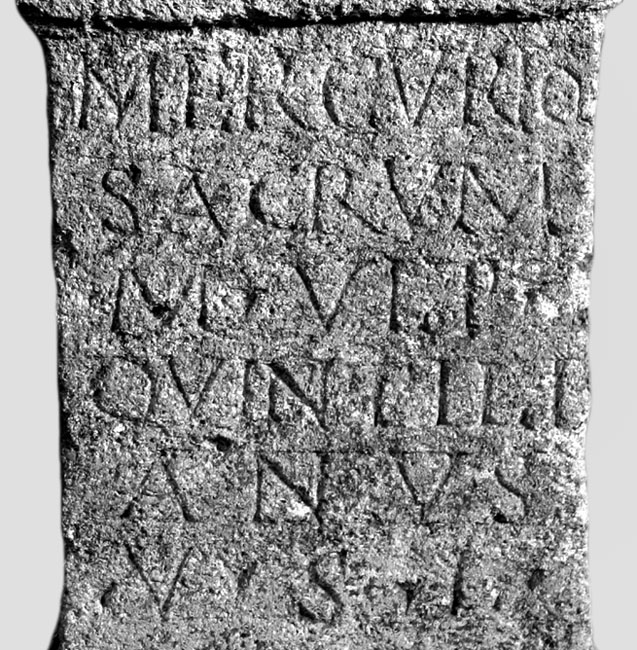 MERCVRIO
SACRVM
M · VLP ·
QVINTILI
ANVS
V · S · L ·